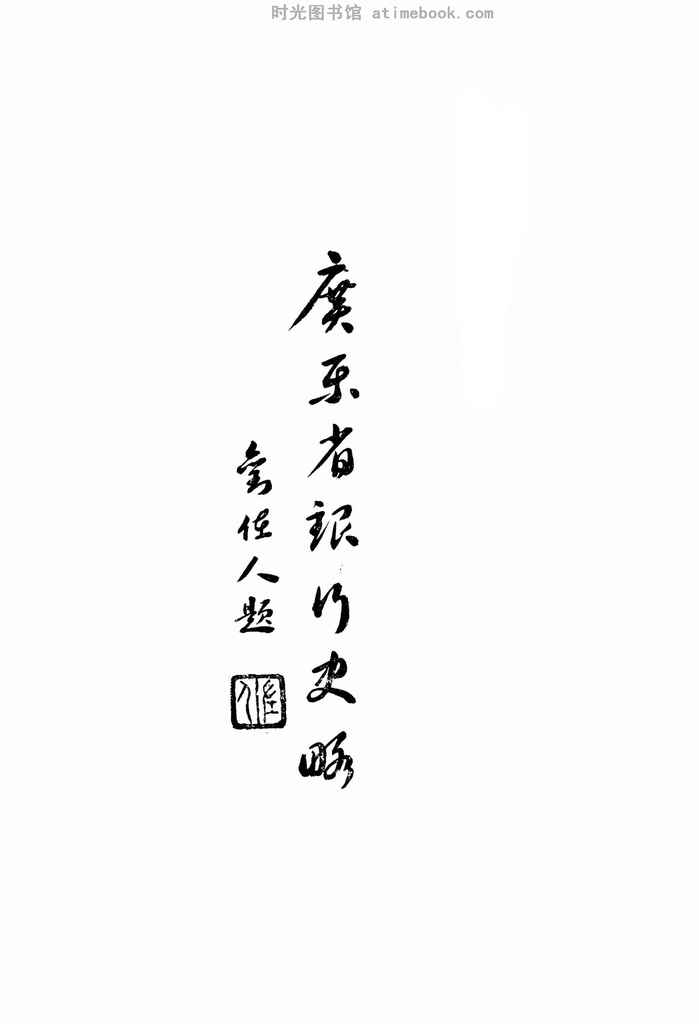 时光图书馆 atimebook.com
廣东省銀行史略
刘佐人题
佐人